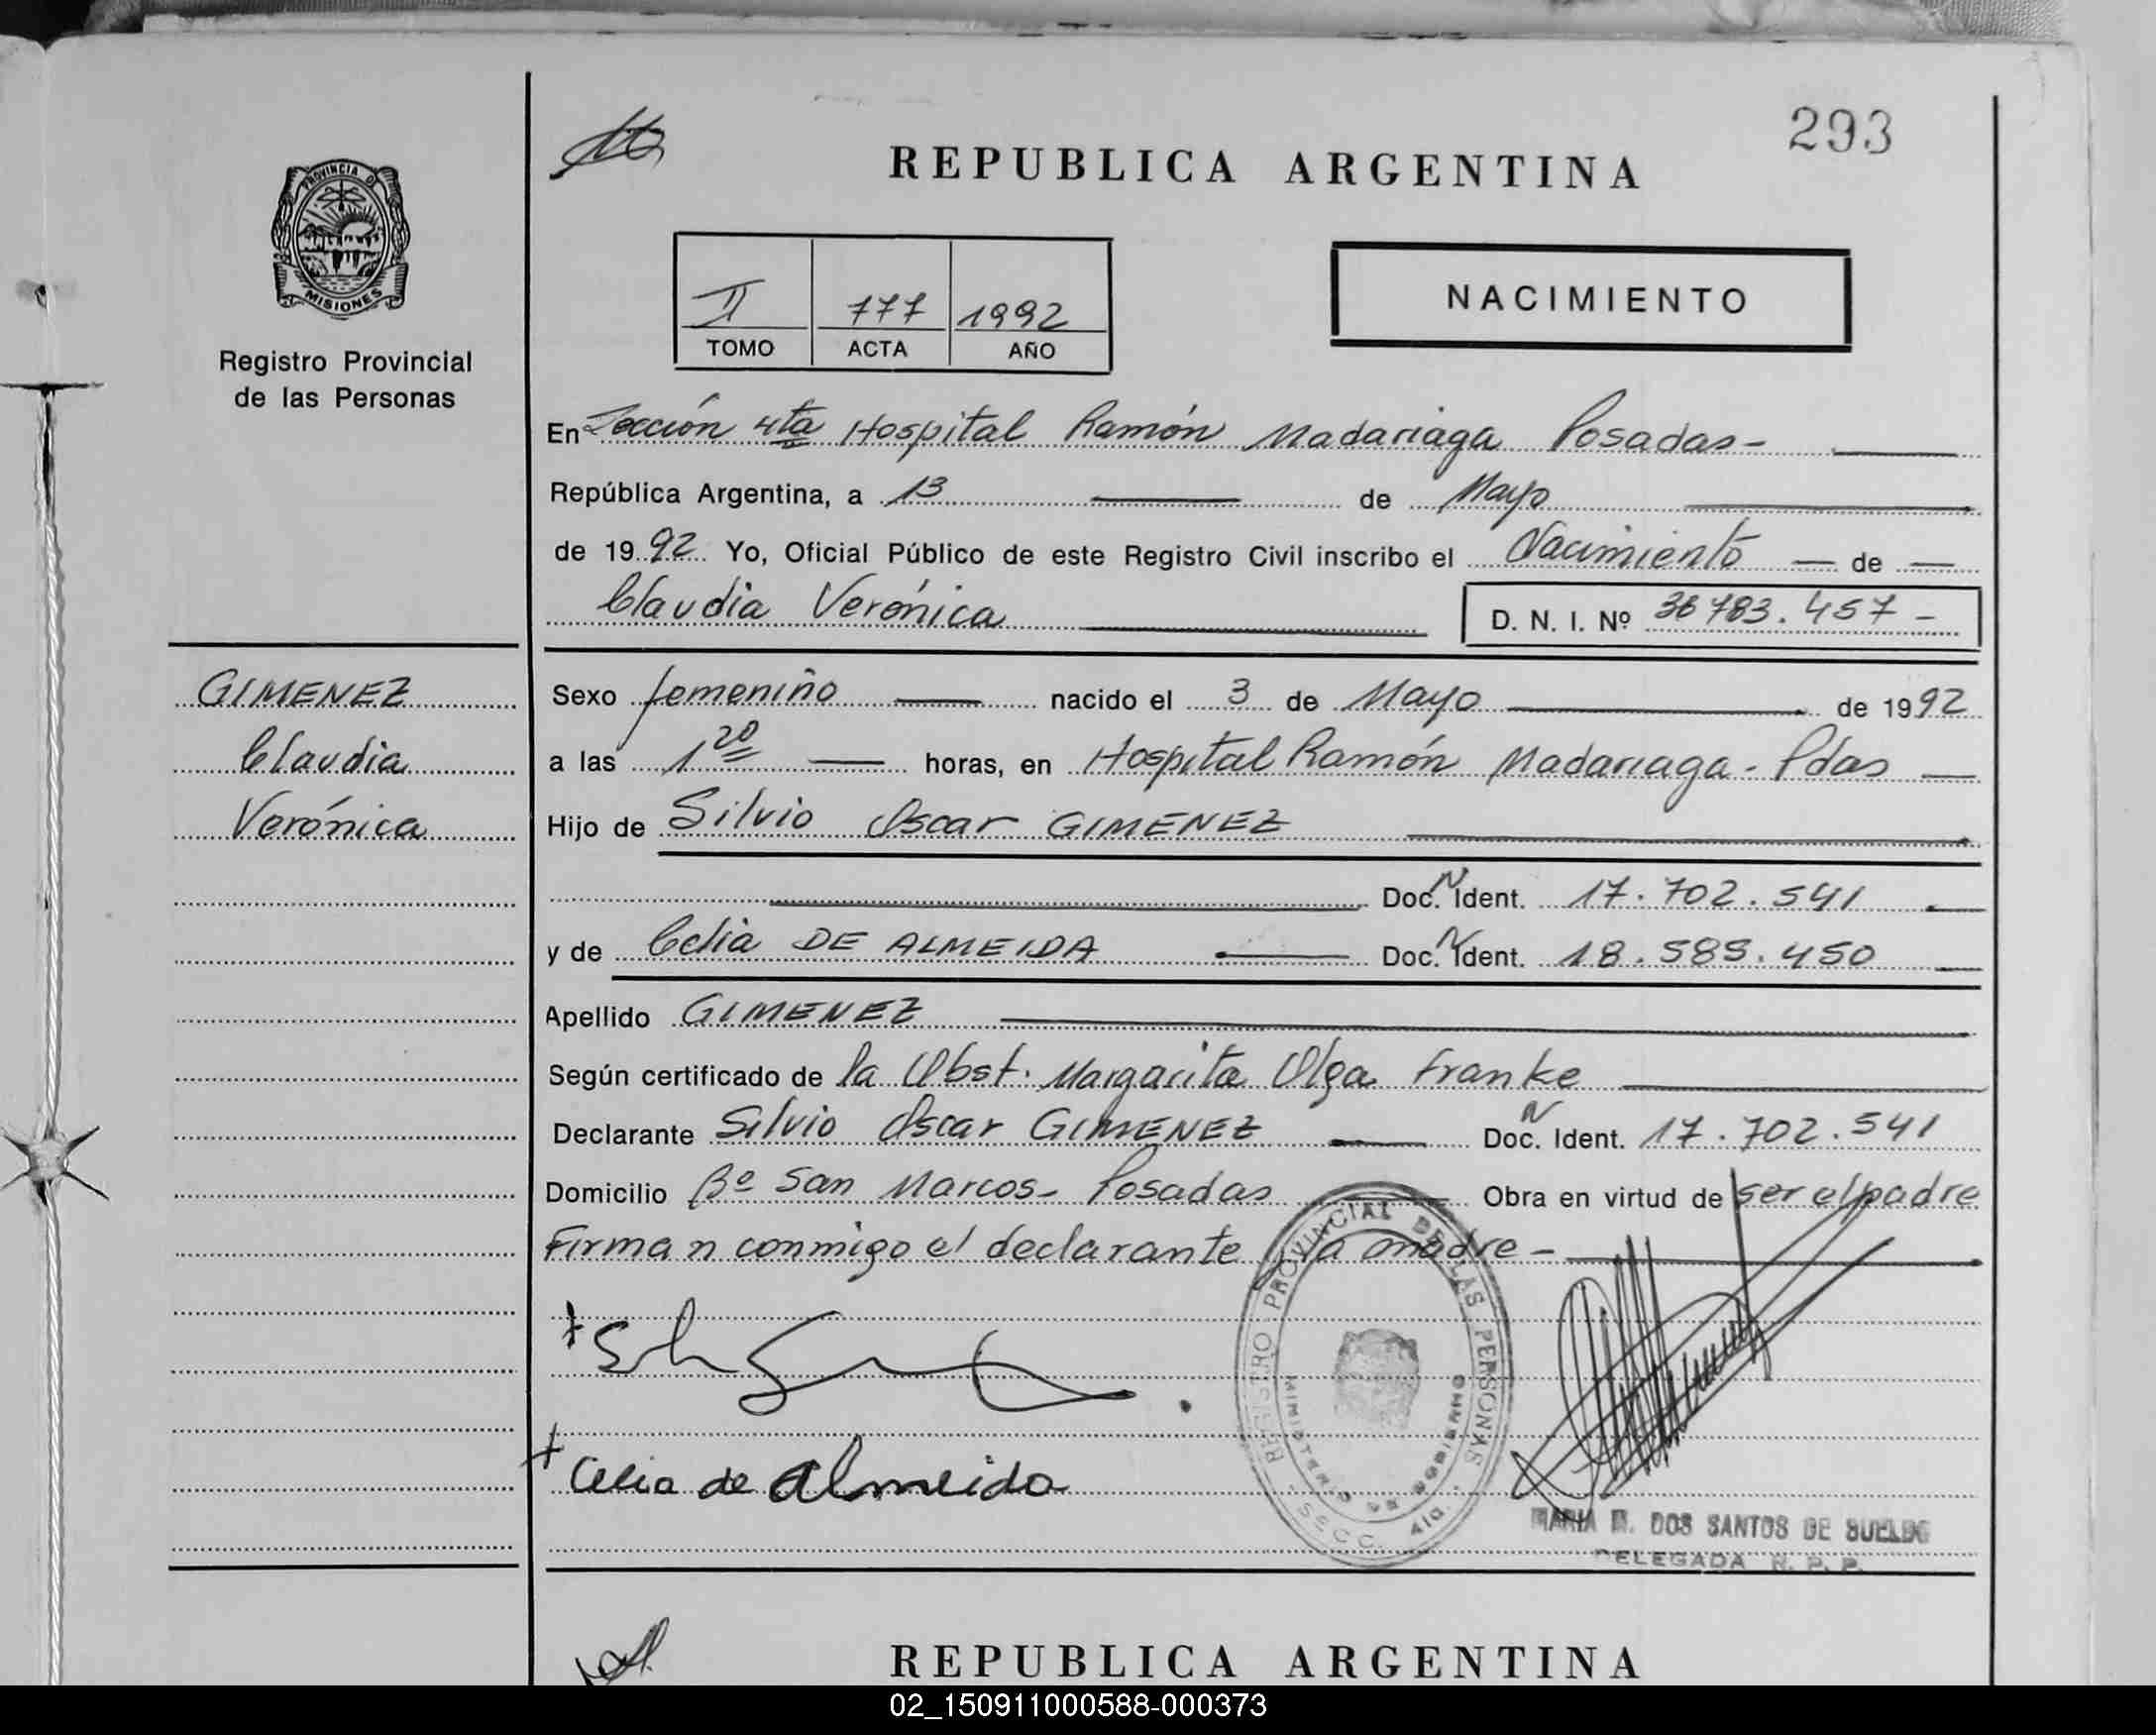 293
REPUBLICA ARGENTINA
PROVINCIA DE
MISIONES
Registro Provincial
de las Personas
II 777 1992
TOMO ACTA AÑO
NACIMIENTO
En Sección 4ta Hospital Ramón Madariaga Posadas-
República Argentina, a 13 de Mayo
de 1992 Yo, Oficial Público de este Registro Civil inscribo el Nacimiento de
Claudia Verónica D. N. I. Nº 36783.457-
GIMENEZ
Claudia
Verónica
Sexo femenino nacido el 3 de Mayo de 1992
a las 1 20 horas, en Hospital Ramón Madariaga - Pdas
Hijo de Silvio Oscar GIMENEZ
Doc. N Ident. 17.702.541
y de Celia DE ALMEIDA Doc. N Ident. 18.589.450
Apellido GIMENEZ
Según certificado de la Obst. Margarita Olga Franke
Declarante Silvio Oscar GIMENEZ Doc. N Ident. 17.702.541
Domicilio Bº San Marcos- Posadas Obra en virtud de ser el padre
Firman conmigo el declarante y la madre -
REGISTRO PROVINCIAL DE LAS PERSONAS
MINISTERIO DE GOBIERNO
SECC. 4ta.
Celia de Almeida
MARIA DOS SANTOS DE
DELEGADA R. P. P.
REPUBLICA ARGENTINA
02_150911000588-000373